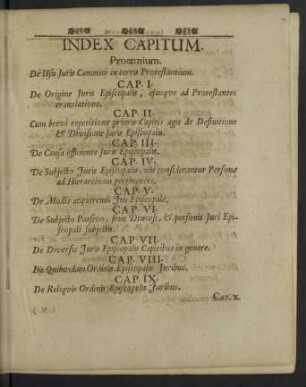 INDEX CAPITUM.
Prooemium.
De Usu Juris Canonici in terris Protestantium.
CAP. I.
De Origine Juris Episcopalis, ejusqve ad Protestantes
translatione.
CAP. II.
Cum brevi repetitione prioris Capitis agit de Definitione
& Divisione Juris Episcopalis.
CAP. III.
De Causa efficiente Juris Episcopalis.
CAP. IV.
De Subjecto Juris Episcopalis, ubi considerantur Personæ
ad Hierarchiam pertinentes.
CAP. V.
De Modis acqvirendi Jus Episcopale.
CAP. VI.
De Subjecto Passivo, sive Dioecesi, & personis Juri Epi-
scopali subjectis.
CAP. VII.
De Diversis Juris Episcopalis Capitibus in genere.
CAP. VIII.
De Quibusdam Ordinis Episcopalis Juribus.
CAP. IX.
De Reliqvis Ordinis Episcopalis Juribus.
CAP. X.